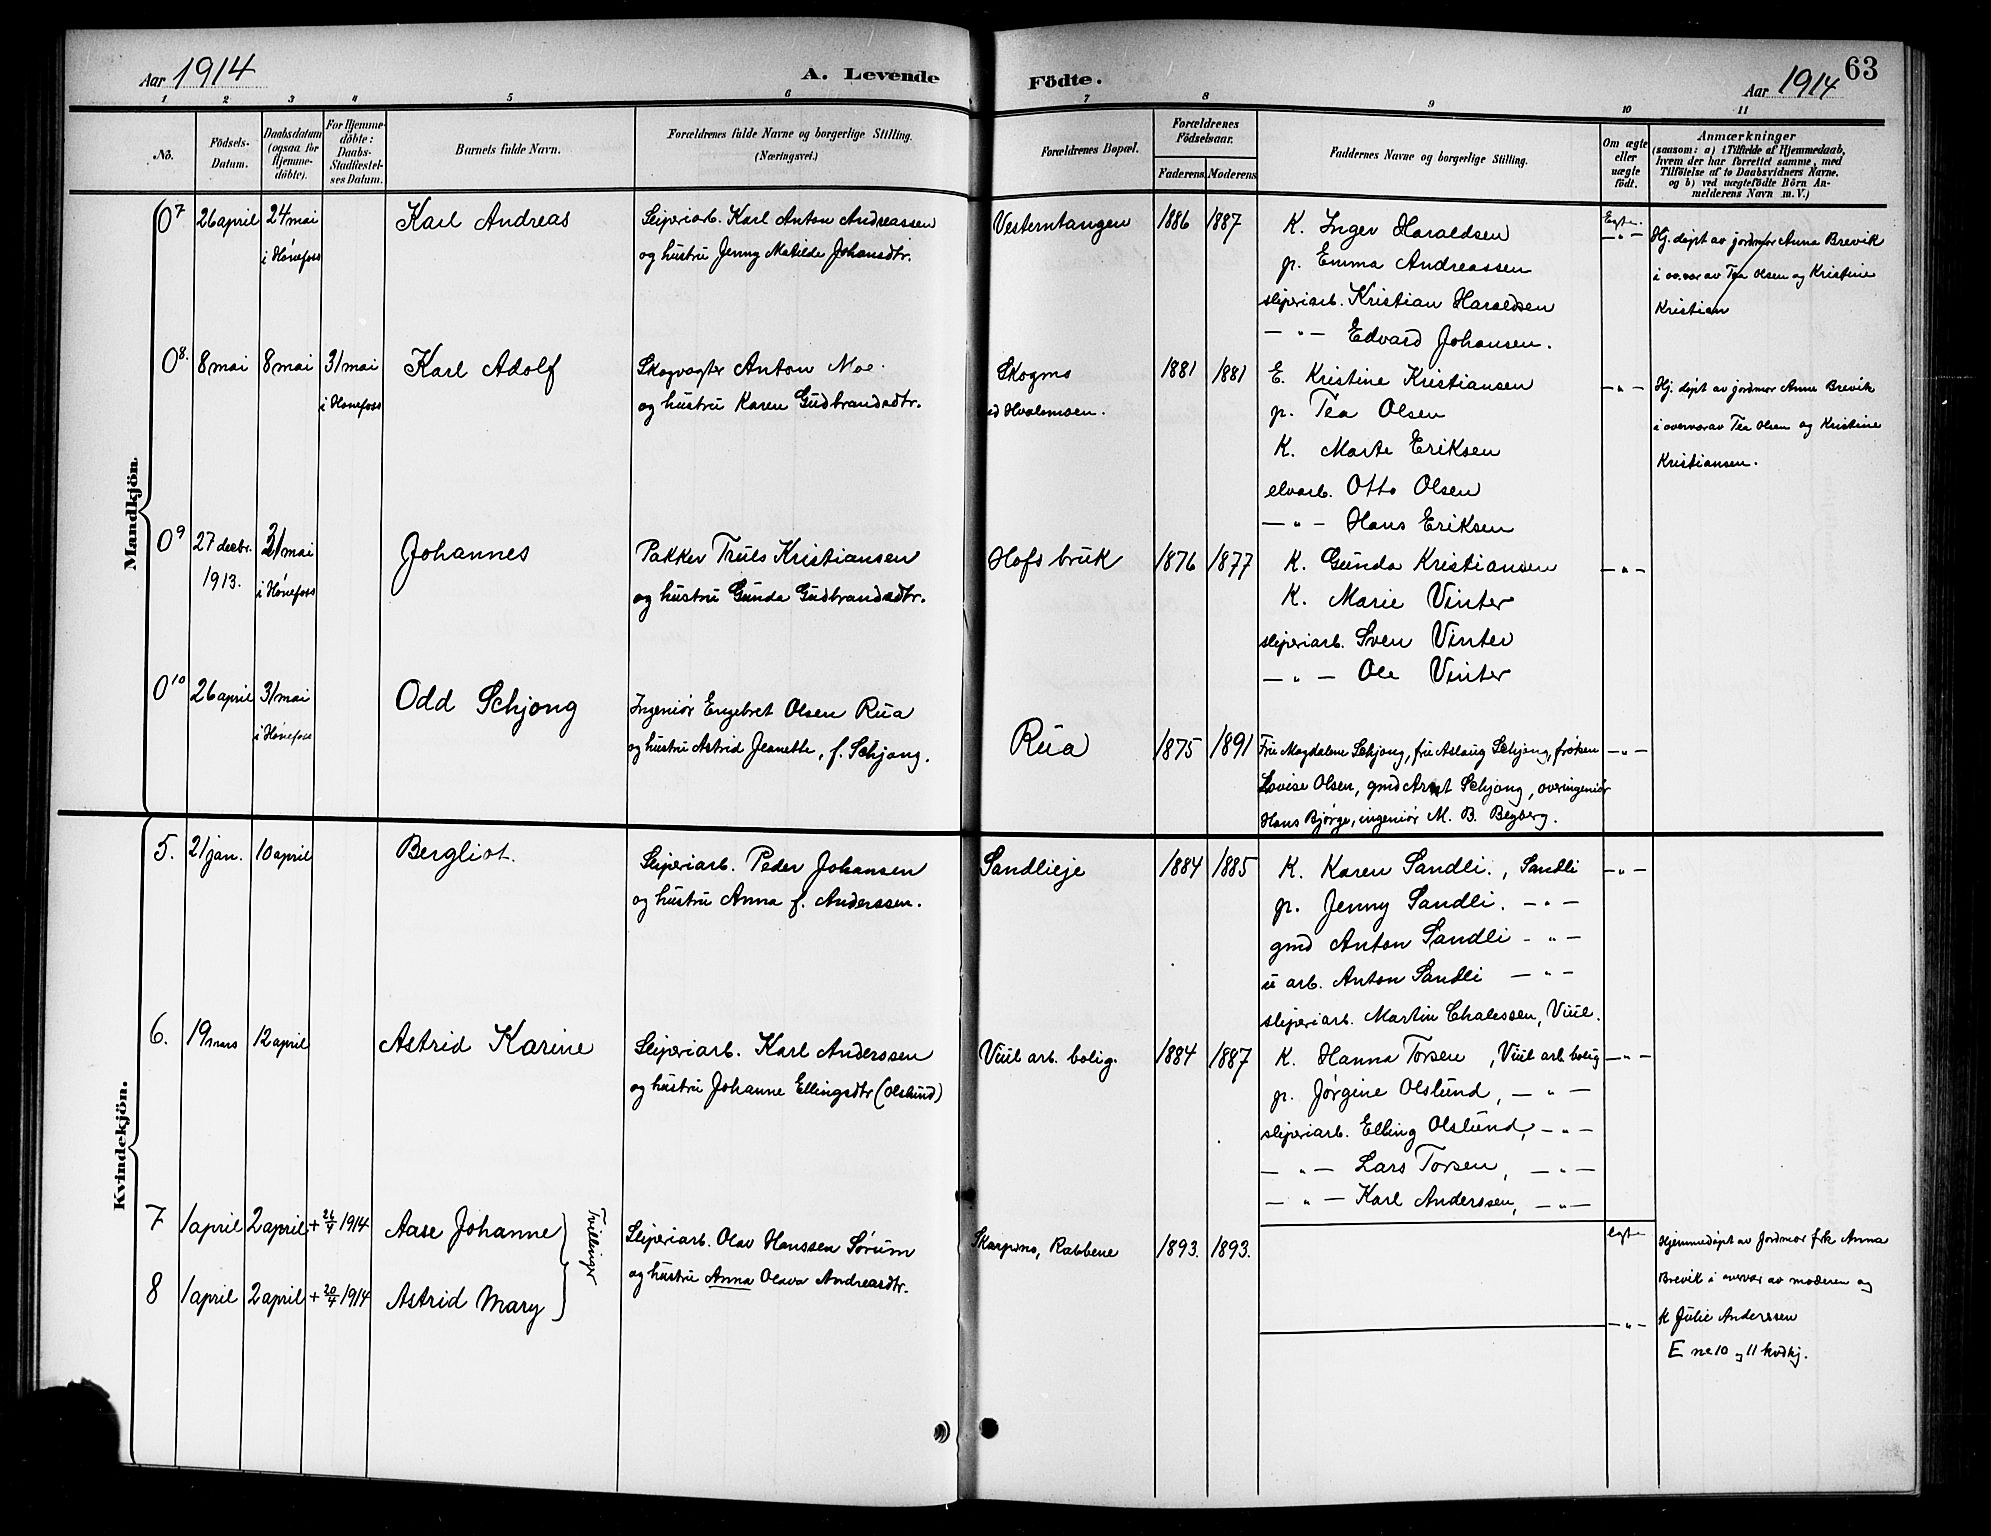 Aar 1914
A. Levende Födte.
Aar 1914
63
1 2 3 4 5 6 7 8 9 10 11
No.
Födsels-Datum.
Daabsdatum (ogsaa for Hjemme-döbte).
For Hjemme-döbte: Daabs-Stadfæstel-ses Datum.
Barnets fulde Navn.
Forældrenes fulde Navne og borgerlige Stilling. (Næringsvei.)
Forældrenes Bopæl.
Forældrenes Födselsaar.
Faderens Moderens
Faddernes Navne og borgerlige Stilling.
Om ægte eller uægte födt.
Anmærkninger
(saasom: a) i Tilfælde af Hjemmedaab, hvem der har forrettet samme, med Tilföielse af to Daabsvidners Navne, og b) ved uægtefödte Börn An-melderens Navn m. V.)
Mandkjön.
07 26 april 24 mai Karl Andreas Sliperiarb. Karl Anton Andreassen Vesterntangen 1886 1887 K. Inger Haraldsen Egte
i Hønefoss og hustru Jenny Matilde Johansdtr. p. Emma Andreassen — " — Hj. døpt av jordmor Anna Brevik
sliperiarb. Kristian Haraldsen i ov.vær av Tea Olsen og Kristine
— " — Edvard Johansen. Kristian
08. 8 mai 8 mai 31 mai Karl Adolf Skogvagter Anton Moe. Skogmo 1881 1881 E. Kristine Kristiansen — " — Hj. døpt av jordmor Anna Brevik
i Hønefoss og hustru Karen Gudbrandsdtr. ved Hvalsmoen. p. Tea Olsen i overvær av Tea Olsen og Kristine
K. Marte Eriksen Kristiansen.
elvarb. Otto Olsen
— " — Hans Eriksen
09 27 decbr. 31 mai Johannes Pakker Truls Kristiansen Hofs bruk 1876 1877 K. Gunda Kristiansen — " —
1913. i Hønefoss og hustru Gunda Gudbrandsdtr. K. Marie Vinter
sliperiarb. Sven Vinter
— " — Ole Vinter
010 26 april 31 mai Odd Schjong Ingeniør Engebret Olsen Rua
i Hønefoss og hustru Astrid Jeanette, f. Schjong. Rua 1875 1891 Fru Magdalene Schjong, fru Aslaug Schjong, frøken — " —
Lovise Olsen, gmd Arnt Schjong, overingeniør
Hans Bjørge, ingeniør M. B. Begberg.
Kvindekjön.
5. 21 jan. 10 april Bergliot. Sliperiarb. Peder Johansen Sandlieje 1884 1885 K. Karen Sandli., Sandli — " —
og hustru Anna f. Anderssen. p. Jenny Sandli. — " —
gmd Anton Sandli — " —
u arb. Anton Sandli — " —
sliperiarb. Martin Chalessen, Viul.
6. 19 mars 12 april Astrid Karine Sliperiarb. Karl Anderssen Viul arb. bolig. 1884 1887 K. Hanna Torsen, Viul arb bolig — " —
og hustru Johanne Ellingsdtr (Olslund) p. Jørgine Olslund, — " —
sliperiarb. Elling Olslund, — " —
— " — Lars Torsen, — " —
— " — Karl Anderssen, — " —
7 1 april 2 april + 26/4 1914 Aase Johanne Tvillinger Sliperiarb. Olav Hanssen Sørum Skarpsno, Rabbene 1893. 1893. egte Hjemmedøpt av Jordmor frk Anna
og hustru Anna Olava Andreasdtr. Brevik i overvær av moderen og
8 1 april 2 april + 20/4 1914 Astrid Mary — " — K Julie Anderssen
E ne 10 og 11 kvdkj.